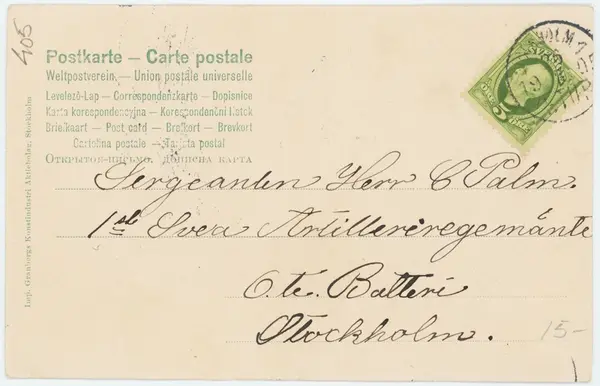 405
Postkarte — Carte postale
Weltpostverein — Union postale universelle
Levelező-Lap — Correspondenzkarte — Dopisnice
Karta korespondencyjna — Korespondenční lístek
Briefkaart — Post card — Brefkort — Brevkort
Cartolina postale — Tarjeta postal
Открытое письмо. Дописна карта
Imp. Granbergs Konstindustri Aktiebolag, Stockholm
SVERIGE
5
Sergeanten Herr C Palm.
1sta Svea Artilleriregemänte
6.te. Batteri
Stockholm.
15-